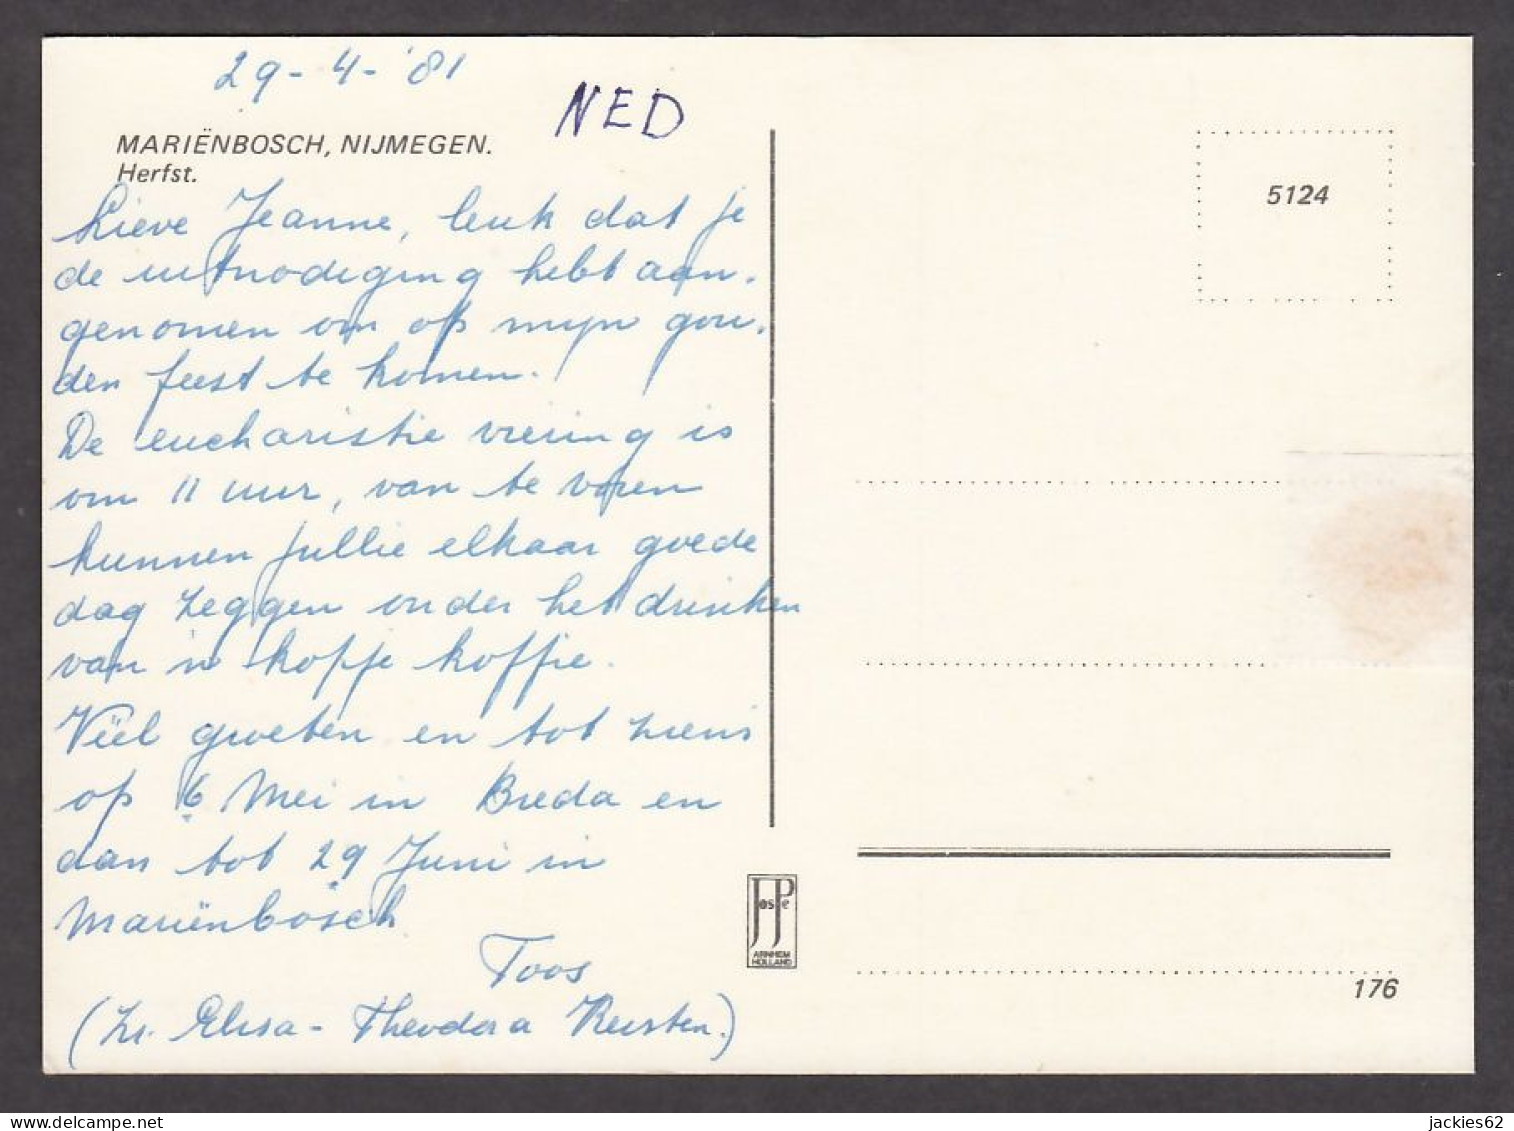 29-4-'81
NED
MARIËNBOSCH, NIJMEGEN.
Herfst.
5124
Lieve Jeanne, leuk dat je
de uitnodiging hebt aan-
genomen om op mijn gou-
den feest te komen.
De eucharistie viering is
om 11 uur, van te voren
kunnen jullie elkaar goede
dag zeggen onder het drinken
van 'n kopje koffie.
Viel groeten en tot ziens
op 6 Mei in Breda en
dan tot 29 Juni in
Mariënbosch
Toos
(Zr. Elisa-Theodora
JosPe
ARNHEM
HOLLAND
176
jackies62